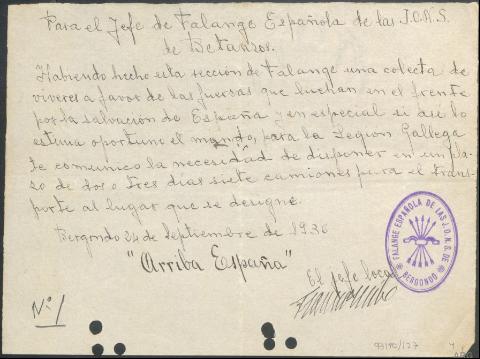 Para el Jefe de Falange Española de las J.O.N.S.
de Betanzos.
Habiendo hecho esta sección de Falange una colecta de
viveres a favor de las fuerzas que luchan en el frente
por la salvación de España y en especial si asi lo
estima oportuno el mando, para la Legion Gallega
te comunico la necesidad de disponer en un pla-
zo de dos o tres dias siete camiones para el trans-
porte al lugar que se designe.
Bergondo 24 de Septiembre de 1936
"Arriba España"
El jefe local
FALANGE ESPAÑOLA DE LAS J.O.N.S. DE
BERGONDO
Nº 1